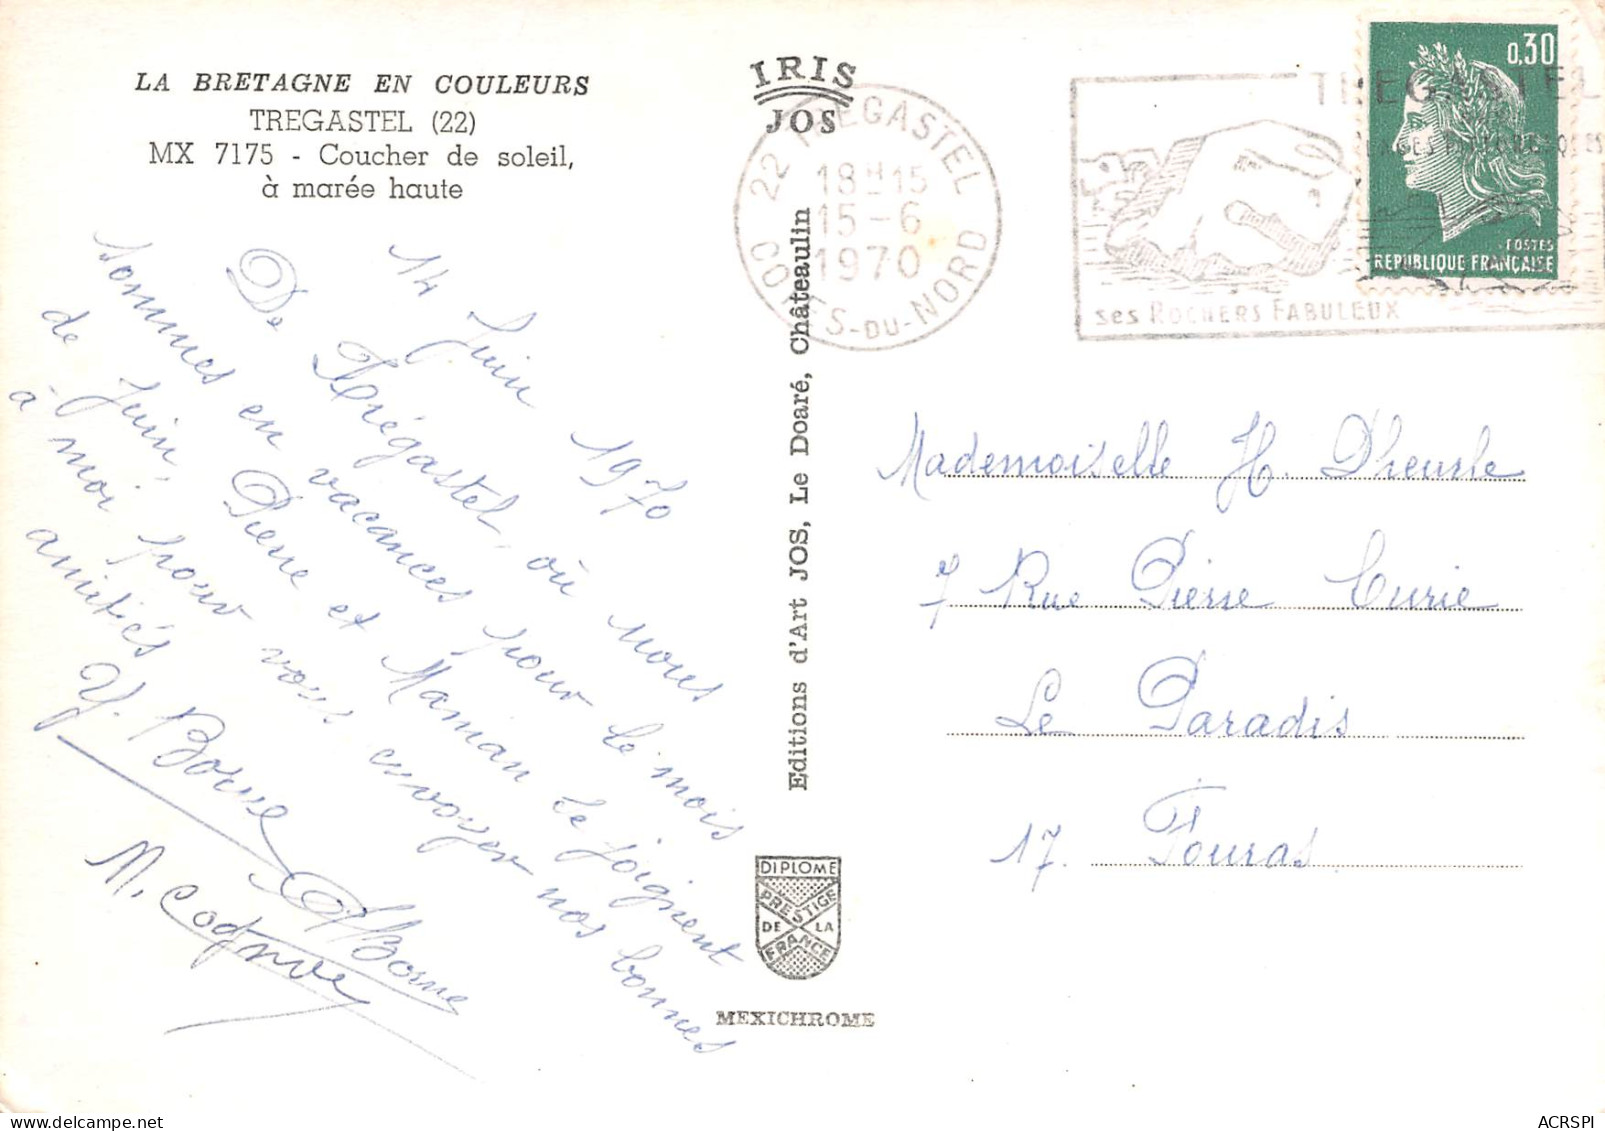 LA BRETAGNE EN COULEURS
TREGASTEL (22)
MX 7175 - Coucher de soleil,
à marée haute
14 Juin 1970
De Trégastel, où nous
sommes en vacances pour le mois
de Juin, Pierre et Maman se joignent
à moi pour vous envoyer nos bonnes
amitiés
Y. Borne
PBorne
M. Cognve
IRIS
JOS
Editions d'Art JOS, Le Doaré, Châteaulin
DIPLOME
PRESTIGE
DE LA
FRANCE
MEXICHROME
22 TREGASTEL
18H15
15-6
1970
COTES-DU-NORD
TREGASTEL
ses ROCHERS FABULEUX
0,30
POSTES
REPUBLIQUE FRANÇAISE
Mademoiselle H. Dheurle
7 Rue Pierre Curie
Le Paradis
17. Fouras
ACRSPI